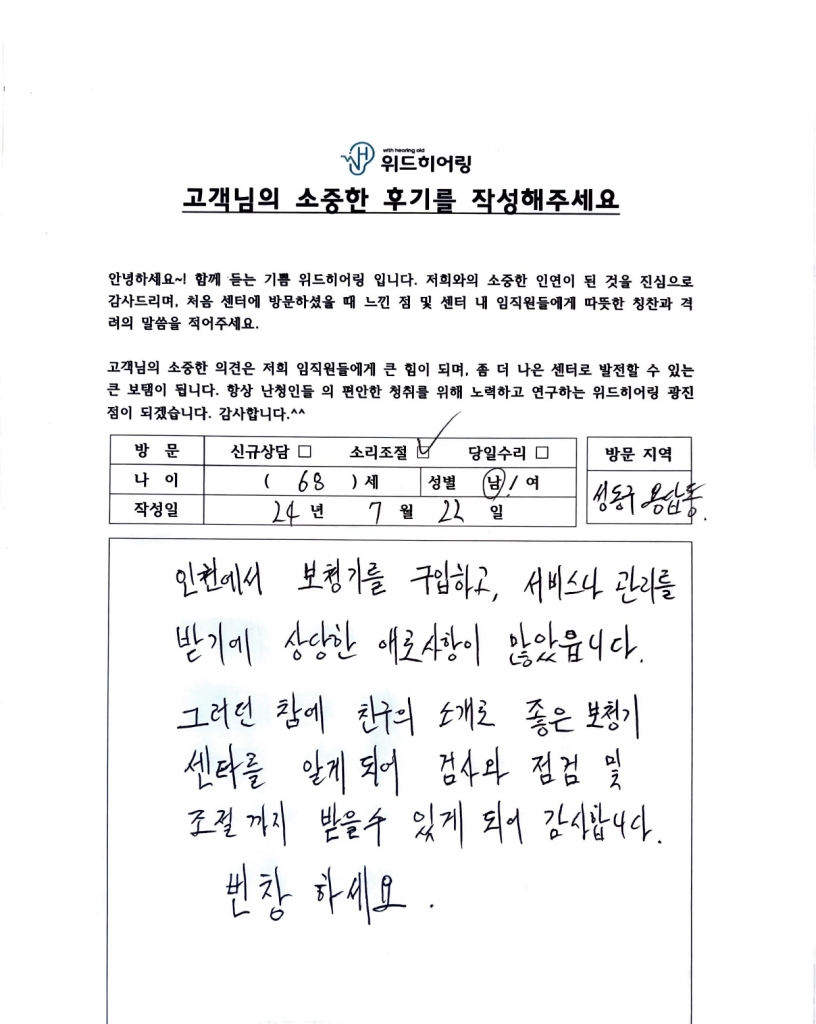 with hearing aid
위드히어링
고객님의 소중한 후기를 작성해주세요
안녕하세요~! 함께 듣는 기쁨 위드히어링 입니다. 저희와의 소중한 인연이 된 것을 진심으로
감사드리며, 처음 센터에 방문하셨을 때 느낀 점 및 센터 내 임직원들에게 따뜻한 칭찬과 격
려의 말씀을 적어주세요.
고객님의 소중한 의견은 저희 임직원들에게 큰 힘이 되며, 좀 더 나은 센터로 발전할 수 있는
큰 보탬이 됩니다. 항상 난청인들 의 편안한 청취를 위해 노력하고 연구하는 위드히어링 광진
점이 되겠습니다. 감사합니다.^^
방 문 신규상담 □ 소리조절 ☑ 당일수리 □ 방문 지역
나 이 ( 68 ) 세 성별 남 / 여 성동구 용답동.
작성일 24 년 7 월 22 일
인천에서 보청기를 구입하고, 서비스나 관리를
받기에 상당한 애로사항이 많았읍니다.
그러던 참에 친구의 소개로 좋은 보청기
센타를 알게 되어 검사와 점검 및
조절 까지 받을수 있게 되어 감사합니다.
번창 하세요.